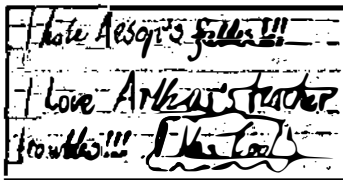 I hate Aesop's fables!!!
I Love Arthur's teacher
trouble!!! I Its Cool